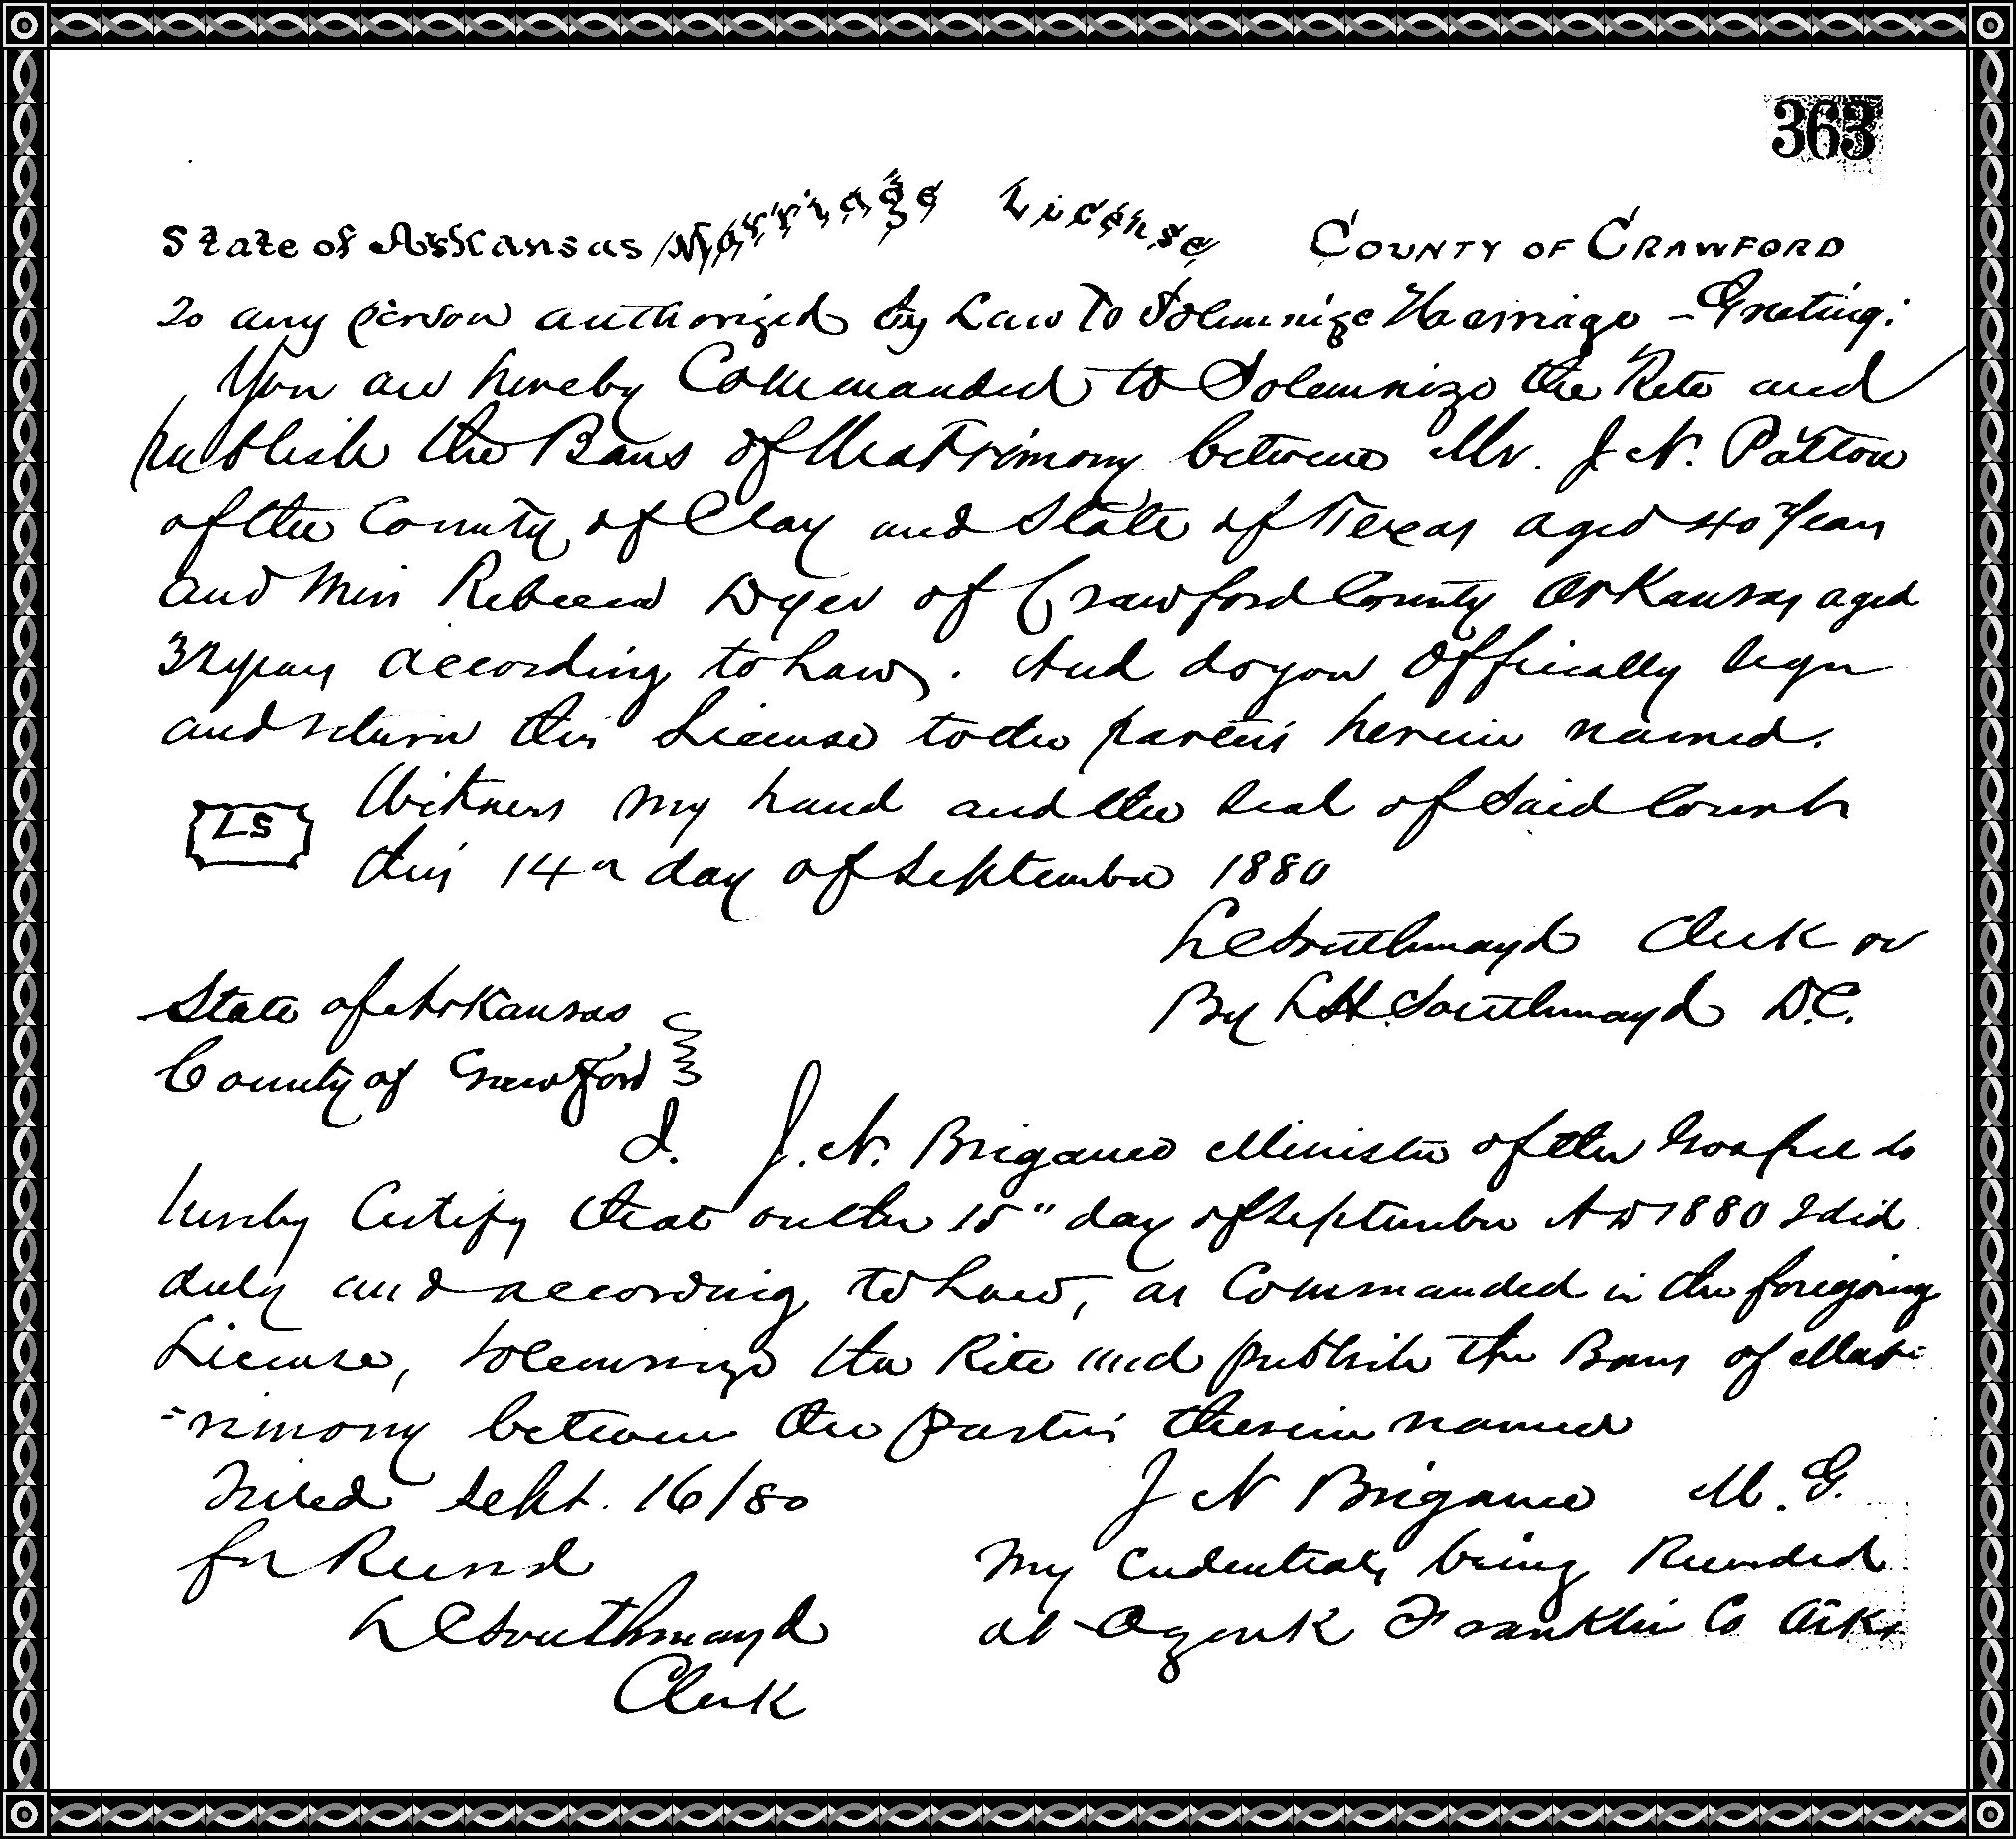 363
State of Arkansas Marriage License County of Crawford
To any person authorized by Law To Solemnize Marriage - Greeting:
You are hereby Commanded to Solemnize the Rite and
publish the Bans of Matrimony between Mr. J. N. Patton
of the County of Clay and State of Texas aged 40 Years
and Miss Rebecca Dyer of Crawford County Arkansas aged
32 years according to Law. And do you Officially sign
and return this License to the parties herein named.
Witness my hand and the seal of said Court
LS
this 14" day of September 1880
L C Southmayd Clerk
By L H Southmayd D.C.
State of Arkansas
County of Crawford
I. J. N. Brigance Minister of the Gospel do
hereby Certify that on the 15" day of September A D 1880 I did
duly and according to Law, as Commanded in the foregoing
License, solemnize the Rite and publish the Bans of Mat-
-rimony between the parties therein named
Filed Sept. 16/80
for Record
L C Southmayd
Clerk
J N Brigance M. G.
My Credentials being Recorded
at Ozark Franklin Co Ark